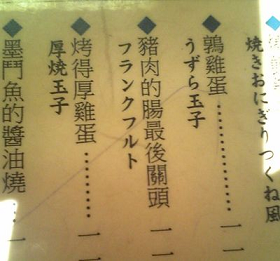 焼きおにぎり つくね風
◆鶉雞蛋………一
うずら玉子
◆豬肉的腸最後關頭 一
フランクフルト
◆烤得厚雞蛋………一
厚焼玉子
◆墨鬥魚的醬油燒…一